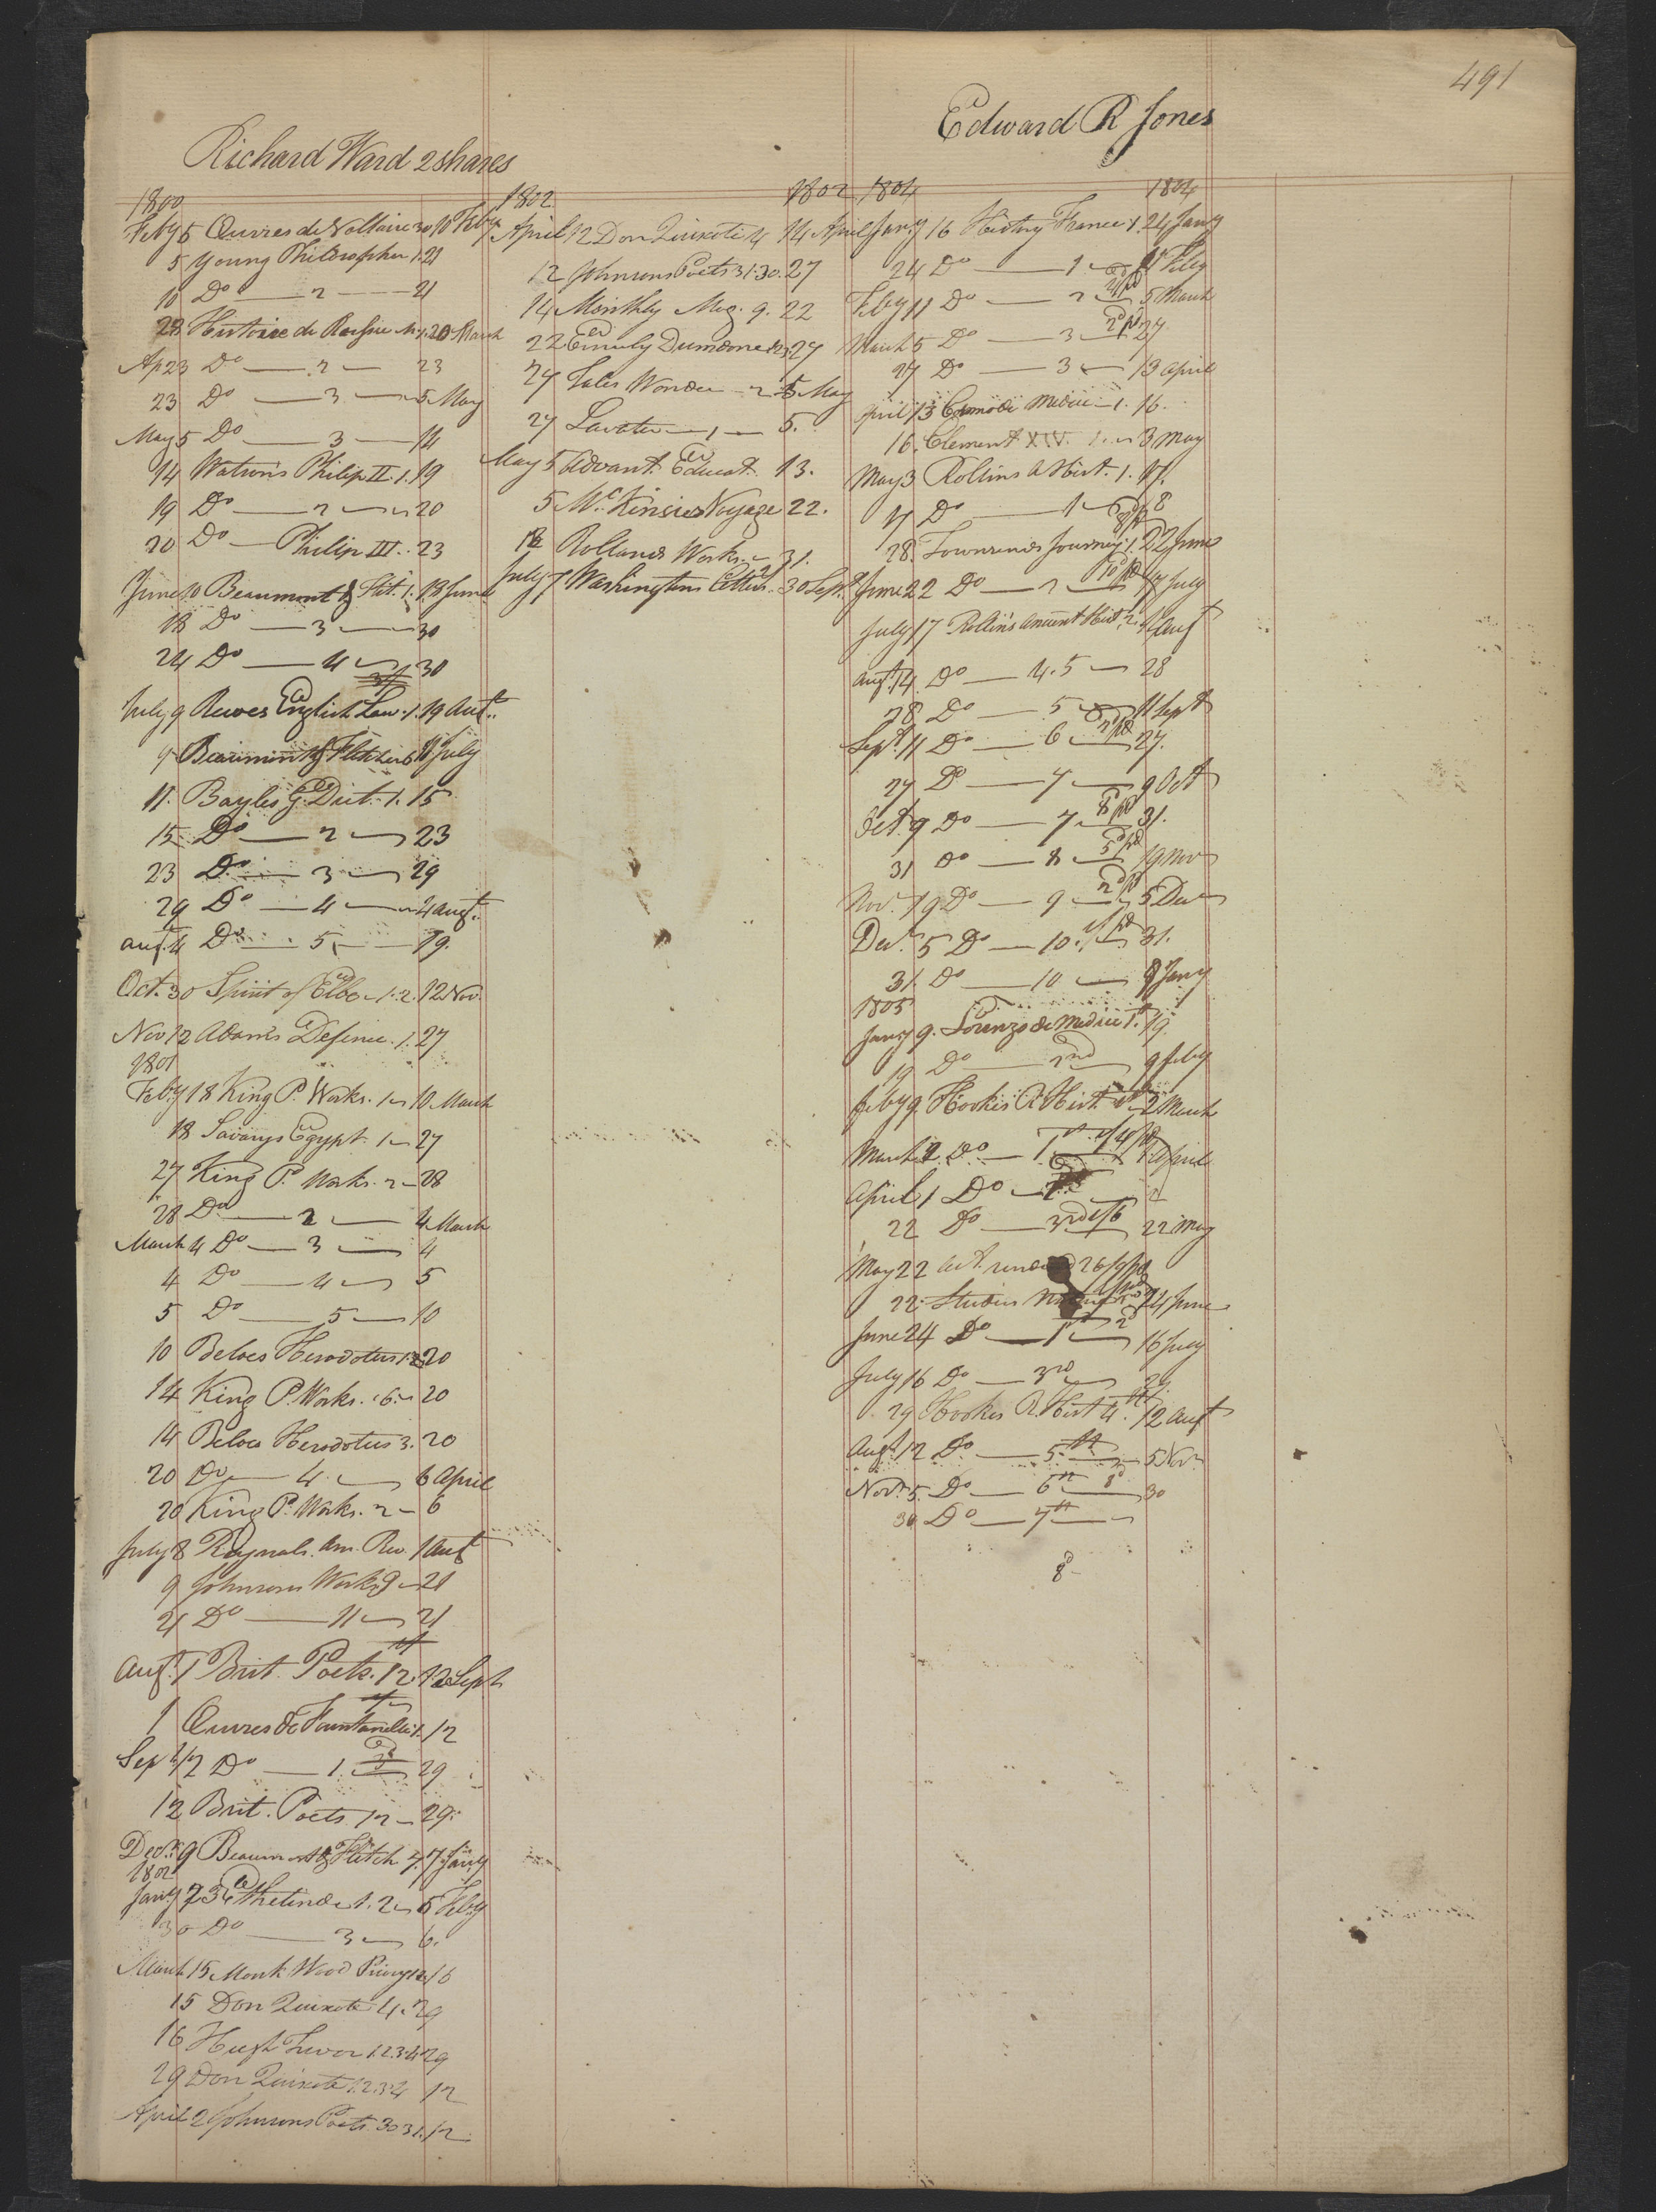 491
Richard Ward 2 shares
1800
Feby 5 Œuvres de Voltaire 30 10 Feby
5 Young Philosopher 1. 21
10 Do — 2 — 21
28 Histoire de Russie 20 March
Ap 23 Do — 2 — 23
23 Do — 3 — 5 May
May 5 Do — 3 — 14
14 Watson's Philip II. 1. 19
19 Do — 2 — 20
20 Do — Philip III. 23
June 10 Beaumont & Flet. 1. 18 June
18 Do — 3 — 30
24 Do — 4 — 30
July 9 Reeves English Law. 1. 19 Aut.
9 Beaumont & Fletcher 6 11 July
11. Bayles G. Dict. 1. 15
15 Do — 2 — 23
23 Do — 3 — 29
29 Do — 4 — 4 augt.
augt. 4 Do — 5 — 19.
Oct. 30 Spirit of Elbe 1. 2. 12 Nov.
Nov 12 Adams Defence. 1. 27
1801
Feby 18 King P. Works. 1 10 March
18 Savarys Egypt. 1 — 27
27 King P. Works. 2 — 28
28 Do — 2 — 4 March
March 4 Do — 3 — 4
4 Do — 4 5
5 Do — 5 — 10
10 Beloes Herodotus 1.2 20
14 King P. Works. 6. 20
14 Beloes Herodotus 3. 20
20 Do — 4. — 6 April
20 King P. Works. 2 — 6
July 8 Raynals. Am. Rev. 1 Aut
9 Johnsons Works 9 — 21
21 Do — 11 — 21
Augt. 1 Brit. Poets. 12. 12 Sept
1 Œuvres de Fountanelle 1. 12
Sept 12 Do — 1. 29
12 Brit. Poets 12 — 29.
Decr. 9 Beaumont & Fletch 7. 7 Jany
1802
Jany 7 Ethelinde 1. 2 6 Feby
30 Do — 3 — 6.
March 15 Monk Wood Priory 1.2 16
15 Don Quixote 4. 29
16 Hugh Trevor 1.2.3.4 29
29 Don Quixote 1.2.3.4 12
April 2 Johnsons Poets 30 31. 12
1802 1802
April 12 Don Quixote 4 14 April
12 Johnsons Poets 31. 30. 27
14 Monthly Mag. 9. 22
22 Emily Dumorne 27
27 Tales Wonder — 2 5 May
27 Lavater — 1 — 5.
May 5 Advant. Educat. 13.
5 McKinsies Voyage 22.
18 Rollands Works 31.
July 7 Washingtons Letters 30 Sept.
Edward R Jones
1804 1804
Jany 16 History France 1. 24 Jany
24 Do — 1 11 Feby
Feby 11 Do — 2 5 March
March 5 Do — 3 27
27 Do — 3 — 13 April
April 13 Cosmo de Medici — 1. 16.
16. Clement XIV. 1. 3 May
May 3 Rollins A Hist. 1. 17.
17 Do — 1 8
28. Townsends Journey 1. 22 June
June 22 Do — 2 17 July
July 17 Rollins Ancient Hist. 2. Augt
Augt. 14. Do — 4. 5 — 28
28. Do — 5 11 Sept
Sept. 11 Do — 6 27.
27 Do — 7 — 9 Oct
Oct. 9 Do — 7 31.
31 Do — 8 19 Nov
Nov. 19 Do — 9 5 Dec
Decr. 5 Do — 10. 31.
31. Do — 10 — 9 Jany
1805
Jany 9. Lorenzo de Medici 1st 19.
19 Do — 2nd 9 Feby
Feby 9. Hookes R Hist. 2 March
March 2. Do — 1 1 April
April 1 Do
22 Do — 3rd 22 May
May 22
22. 24 June
June 24 Do — 1st — 16 July
July 16 Do — 3rd 29
29 Hookes R. Hist 4th. 12 Augt
Augt. 12 Do — 5th — 5 Nov
Novr. 5. Do — 6th 30
30 Do — 7th
8d